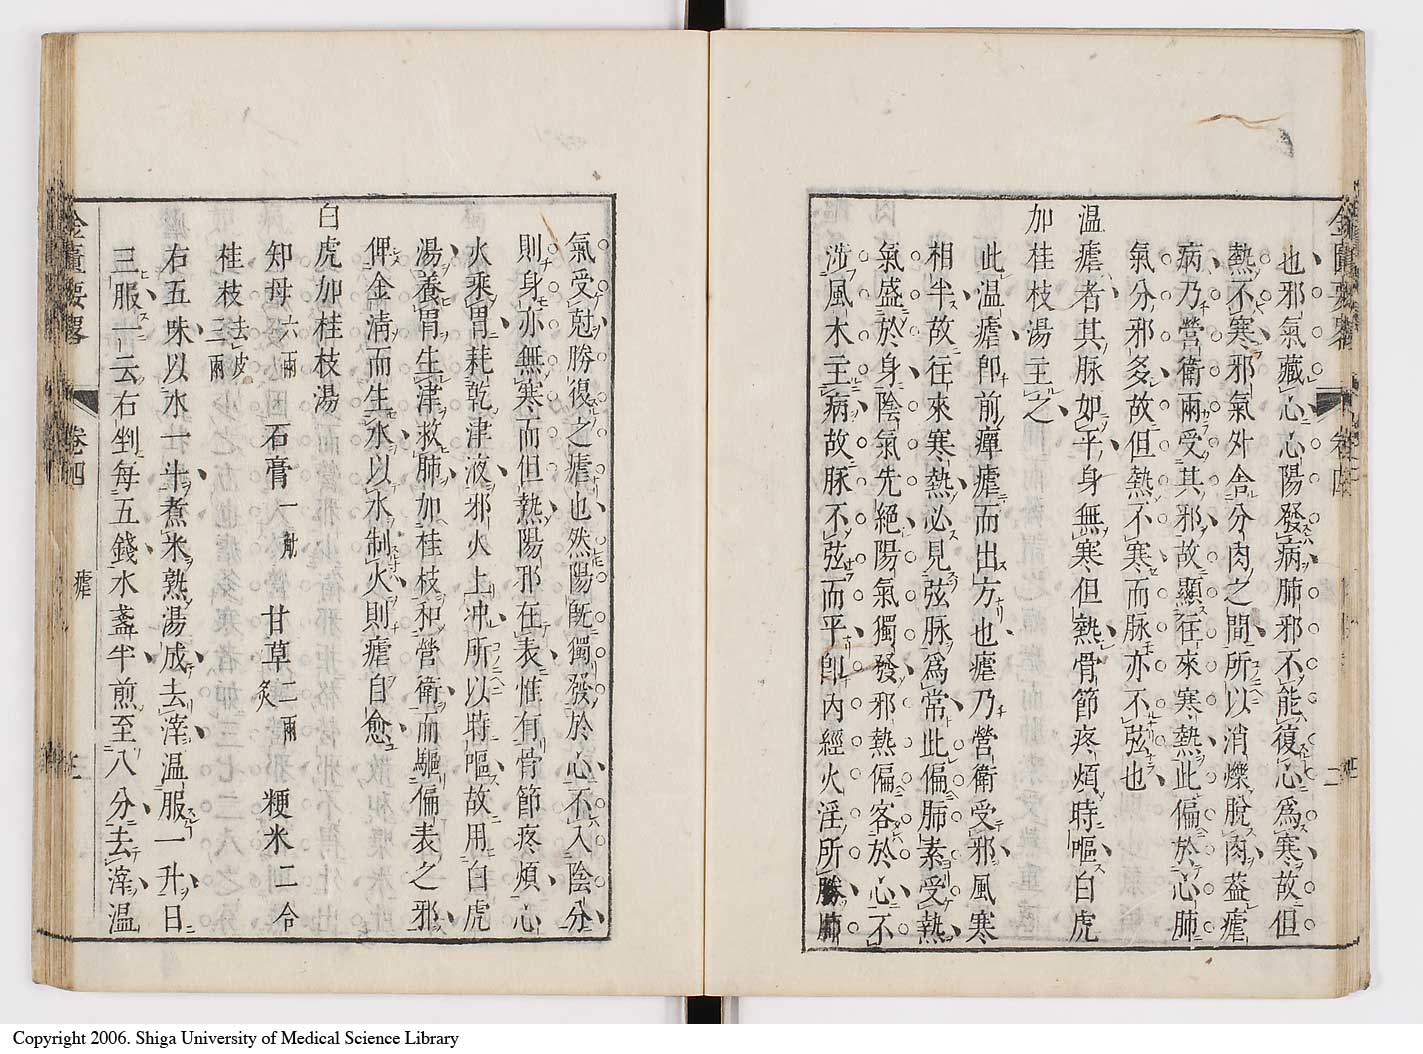 也邪氣藏心心陽發病肺邪不能復心為寒故但
熱不寒邪氣外舍分肉之間所以消爍脫肉葢瘧
病乃營衛兩受其邪故顯往來寒熱此偏於心肺
氣分邪多故但熱不寒而脉亦不弦也
温瘧者其脉如平身無寒但熱骨節疼煩時嘔白虎
加桂枝湯主之
此温瘧即前癉瘧而出方也瘧乃營衛受邪風寒
相半故往來寒熱必見弦脉為常此偏肺素受熱
氣盛於身陰氣先絕陽氣獨發邪熱偏客於心不
涉風木主病故脉不弦而平即內經火淫所勝肺
氣受尅勝復之瘧也然陽既獨發於心不入陰分
則身亦無寒而但熱陽邪在表惟有骨節疼煩心
火乘胃耗乾津液邪火上冲所以時嘔故用白虎
湯養胃生津救肺加桂枝和營衛而驅偏表之邪
俾金清而生水以水制火則瘧自愈
白虎加桂枝湯
知母六兩 石膏一觔 甘草二兩炙 粳米二合
桂枝去皮三兩
右五味以水一斗煮米熟湯成去滓温服一升日
三服一云右剉每五錢水盞半煎至八分去滓温
金匱要畧 卷四 瘧
Copyright 2006. Shiga University of Medical Science Library